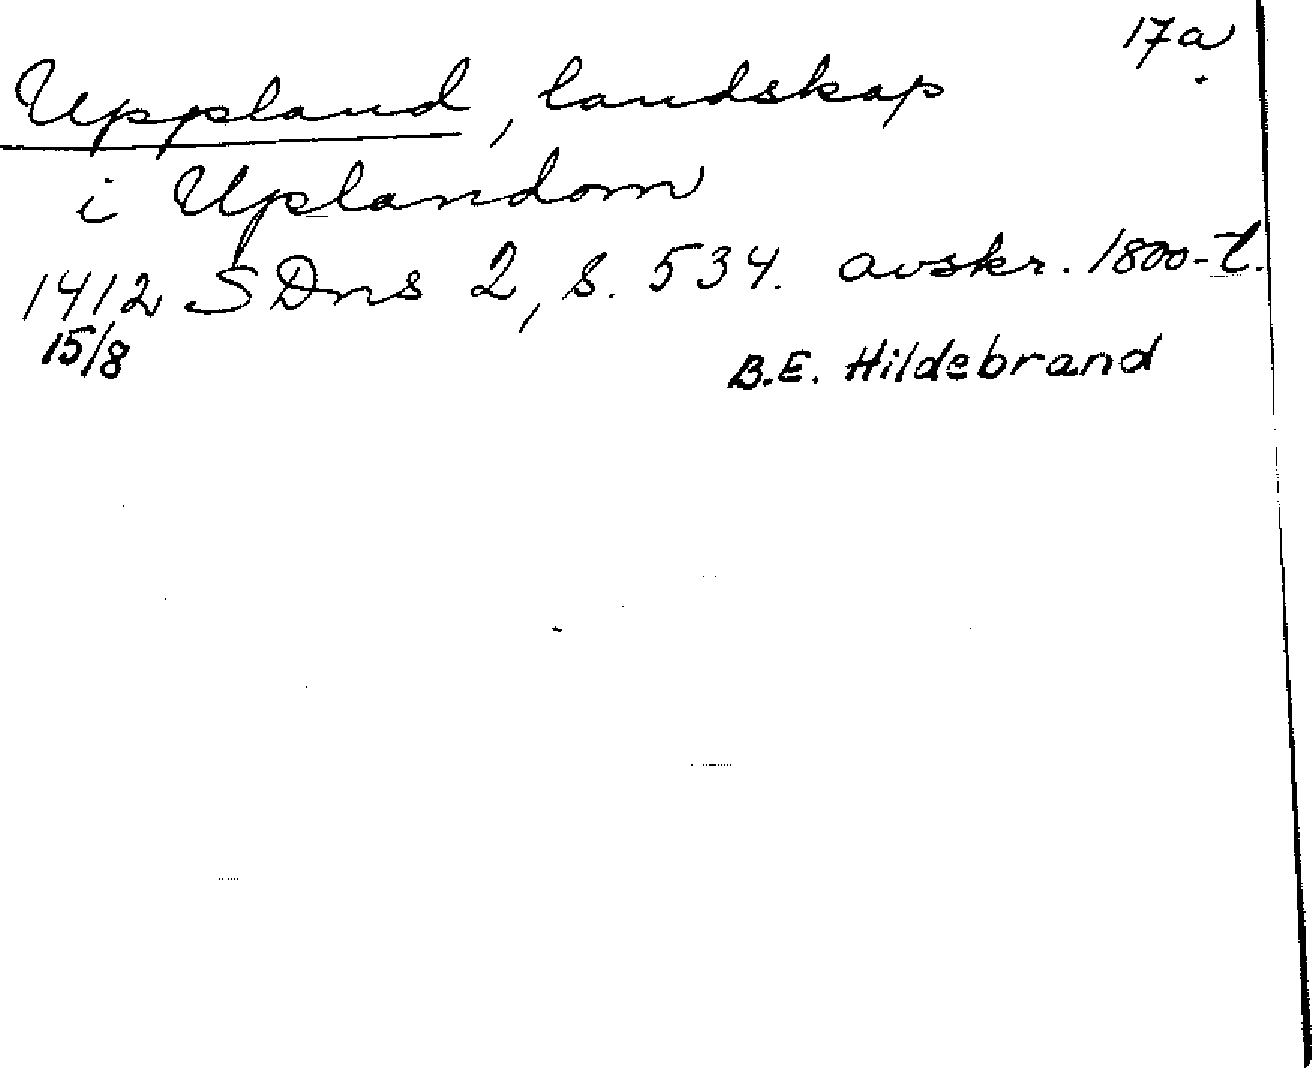 17a
Uppland, landskap
i Uplandom
1412 SDns 2, s. 534. avskr. 1800-t.
15/8
B.E. Hildebrand